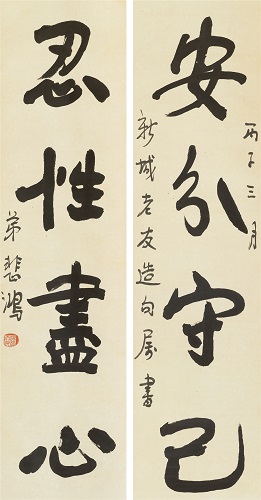 丙子三月
安分守己
新城老友造句属书
忍性盡心
弟悲鴻